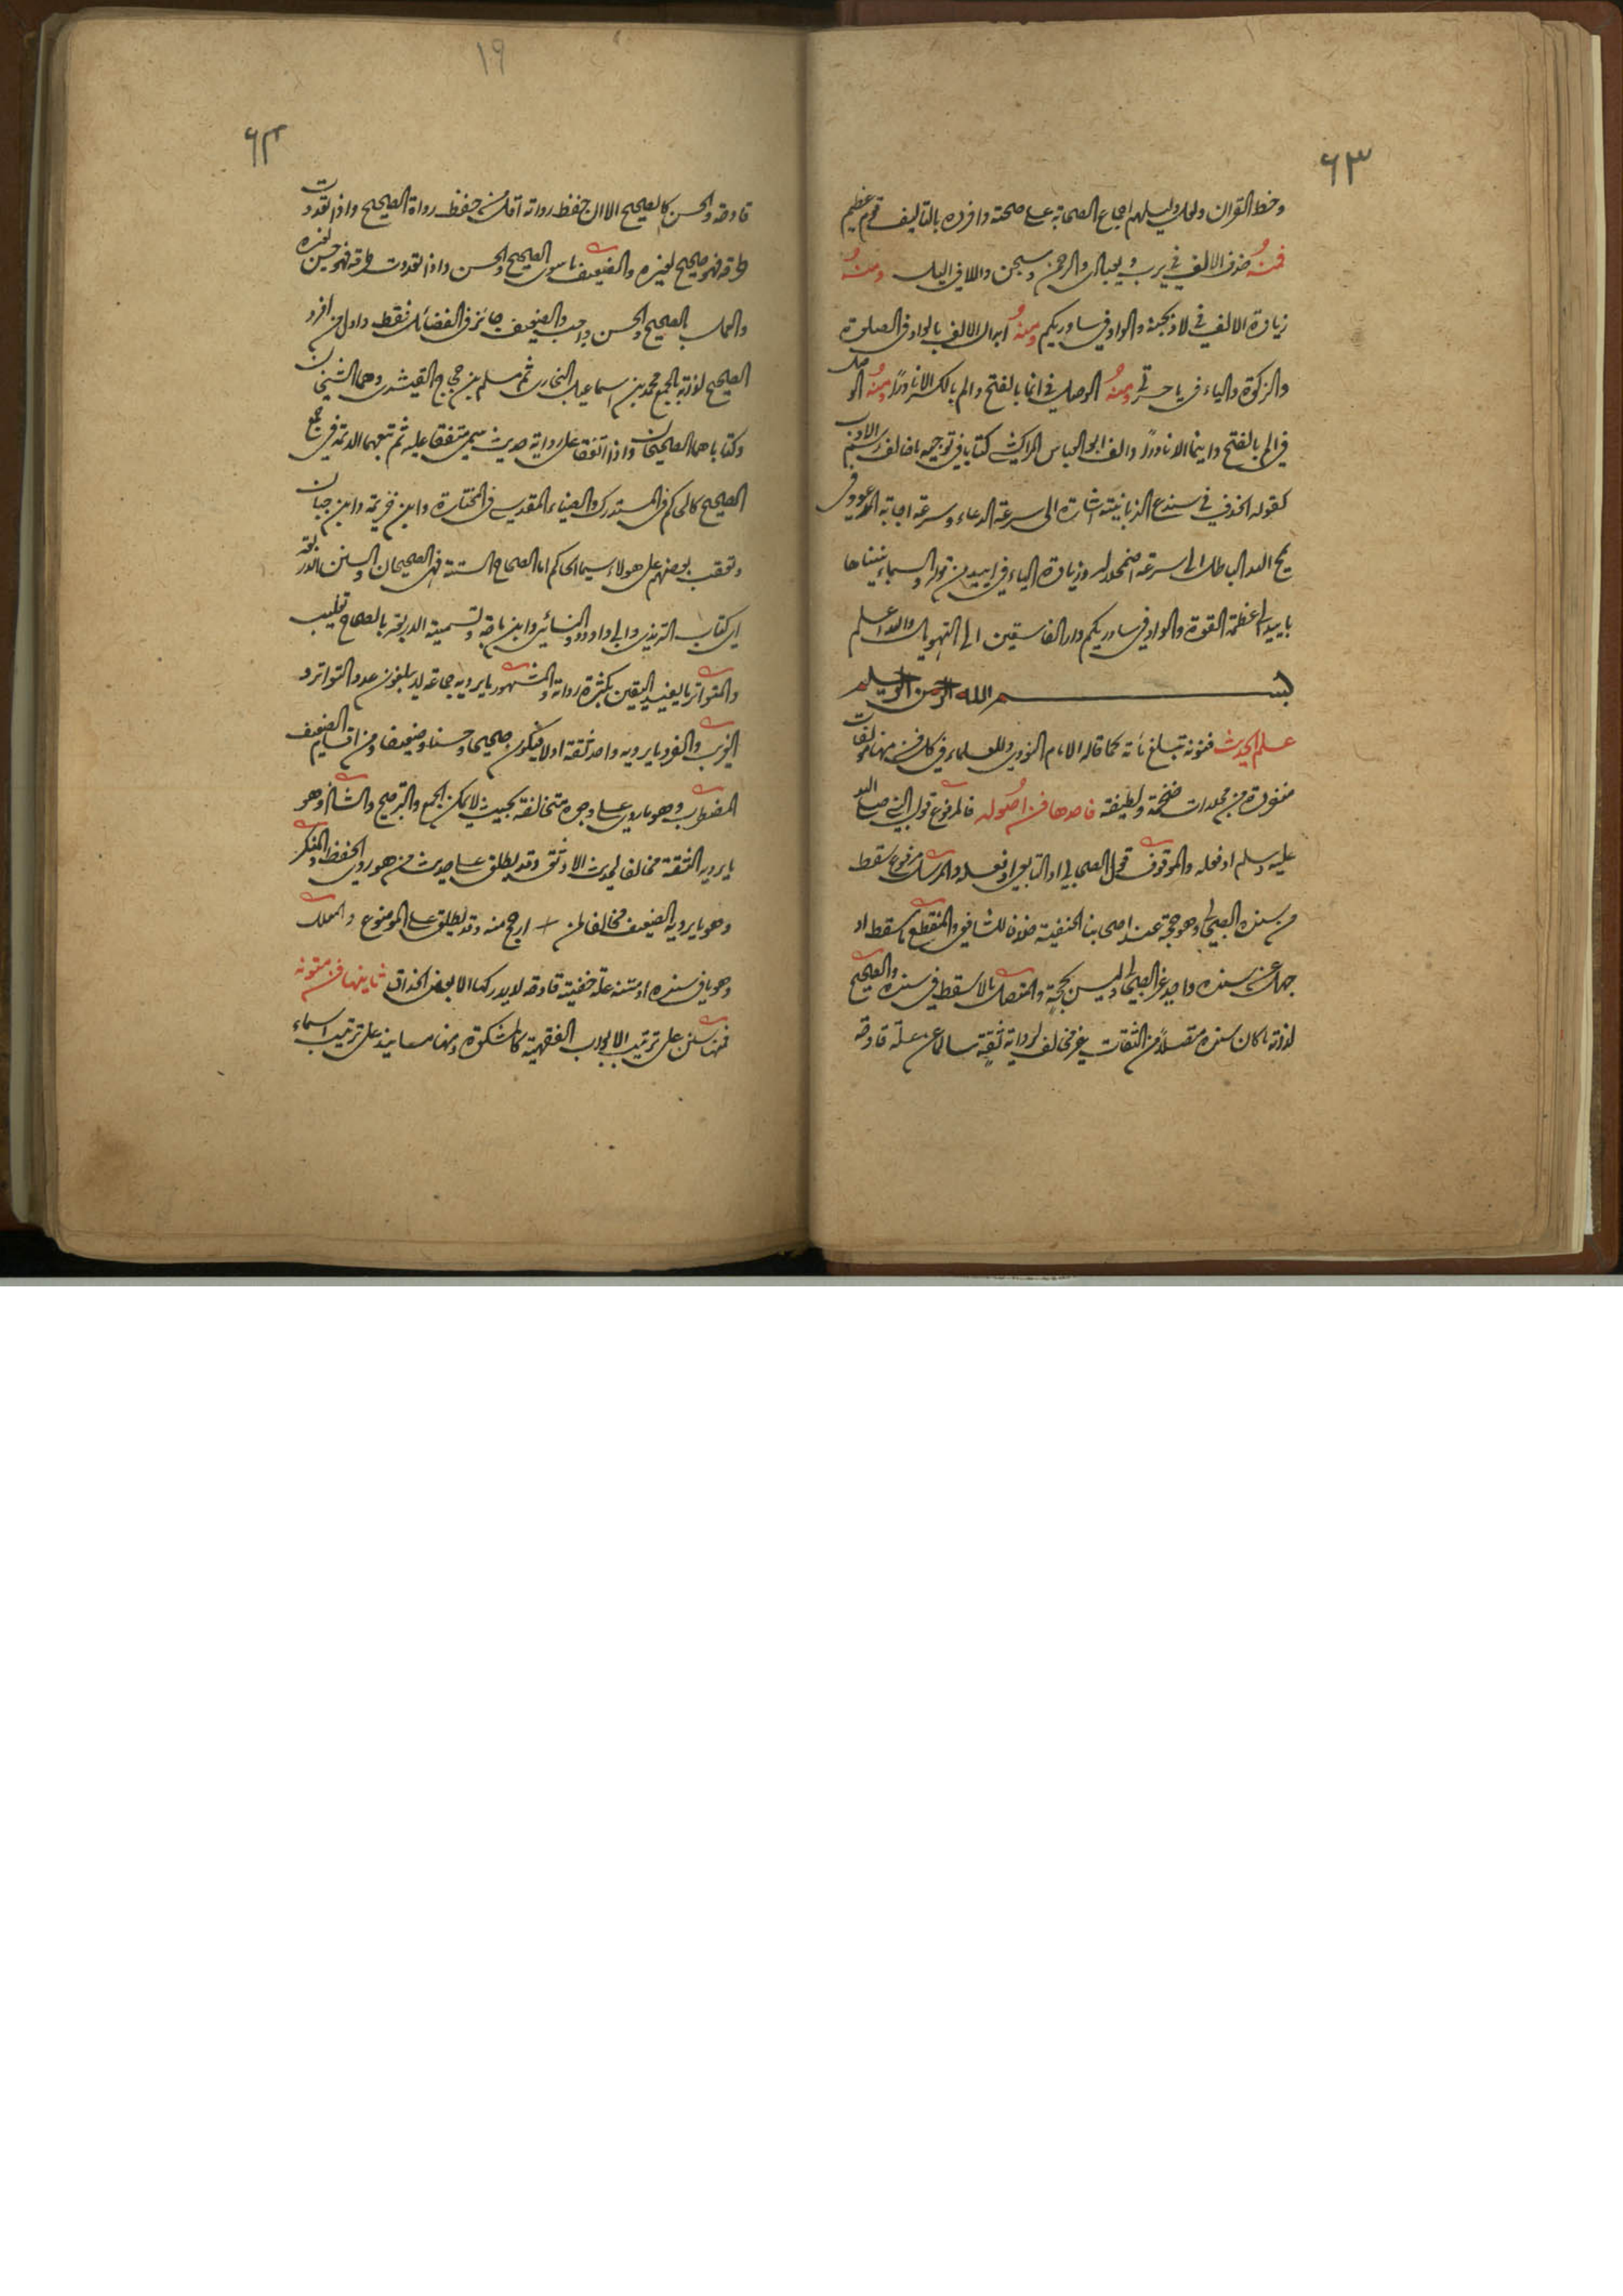 ٦٣
وخط القران ولحل دليلهم اجماع الصحابة على صحته وافرده بالتاليف قوم عظيم
فمنه حذف الالف في يرب و يجبال والرحمن وسبحن واللا في اليل ومنه
زيادة الالف في لاذبحنه والواو في ساوريكم ومنه ابدال الالف بالواو في الصلوة
والزكوة والياء في يا حسرتى ومنه الوصل في انما بالفتح والم بالكسر الا نادرا ومنه الوصل
في الم بالفتح واينما الا نادرا والف ابو العباس المراكشي كتابا في توجيه ما خالف رسم الادب
كقوله الحذف في سندع الزبانية اشارة الى سرعة الدعاء وسرعة اجابة المدعو وفي
يمح الله الباطل الى سرعة اضمحلاله وزيادة الياء في اييد من قوله والسماء بنيناها
باييد لعظمة القوة والواو في ساوريكم دار الفاسقين الى التهويل والله اعلم
بسم الله الرحمن الرحيم
علم الحديث فنونه تبلغ مائة كما قاله الامام النووي وللعلماء في كل فن منها مؤلفات
متفردة من مجلدات ضخمة ولطيفة فاحدها فن اصوله فالمرفوع قول النبي صلى الله
عليه وسلم او فعله والموقوف قول الصحابي او التابعي او فعله والمرسل مرفوع سقط
من سنده الصحابي وهو حجة عند اصحابنا الحنفية خلافا للشافعي والمنقطع ما سقط او
جهل عن سنده واحد غير الصحابي وليس بحجة والمتصل ما لا سقط في سنده والصحيح
لذاته ما كان سنده متصلا من الثقات غير مخالف لرواية ثقة سالما عن علة قادحة
١٩
٦٤
قادحة والحسن كالصحيح الا ان حفظ رواته اقل من حفظ رواة الصحيح واذا تعددت
طرقه فهو صحيح لغيره والضعيف ما سوى الصحيح والحسن واذا تعددت طرقه فهو حسن لغيره
والعمل بالصحيح والحسن واجب والضعيف جائز في الفضائل فقط واول من افرد
الصحيح لذاته بالجمع محمد بن اسماعيل البخاري ثم مسلم بن حجاج القشيري وهما الشيخان
وكتاباهما الصحيحان واذا اتفقا على رواية حديث سمي متفقا عليه ثم تبعهما الائمة في جمع
الصحيح كالحاكم في المستدرك والضياء المقدسي في المختارة وابن خزيمة وابن حبان
وتعقب بعضهم على هولاء سيما الحاكم اما الصحاح الستة فهي الصحيحان والسنن الاربعة
اي كتاب الترمذي وابي داود والنسائي وابن ماجة وتسمية الاربعة بالصحاح تغليب
والمتواتر ما يفيد اليقين بكثرة رواته والمشهور ما يرويه جماعة لا يبلغون عدد التواتر و
الغريب والفرد ما يرويه واحد ثقة اولا فيكون صحيحا وحسنا وضعيفا ومن اقسام الضعيف
المضطرب وهو ما روي على وجوه متخالفة بحيث لا يمكن الجمع والترجيح والشاذ وهو
ما يرويه الثقة مخالفا لحديث الاوثق وقد يطلق على حديث من هو ردي الحفظ والمنكر
وهو ما يرويه الضعيف مخالفا لمن ارجح منه وقد يطلق على الموضوع والمعلل
وهو ما في سنده او متنه علة خفية قادحة لا يدركها الا بعض الحذاق ثانيها فن متونه
فمنها سنن على ترتيب الابواب الفقهية كالمشكوة ومنها مسانيد على ترتيب اسماء